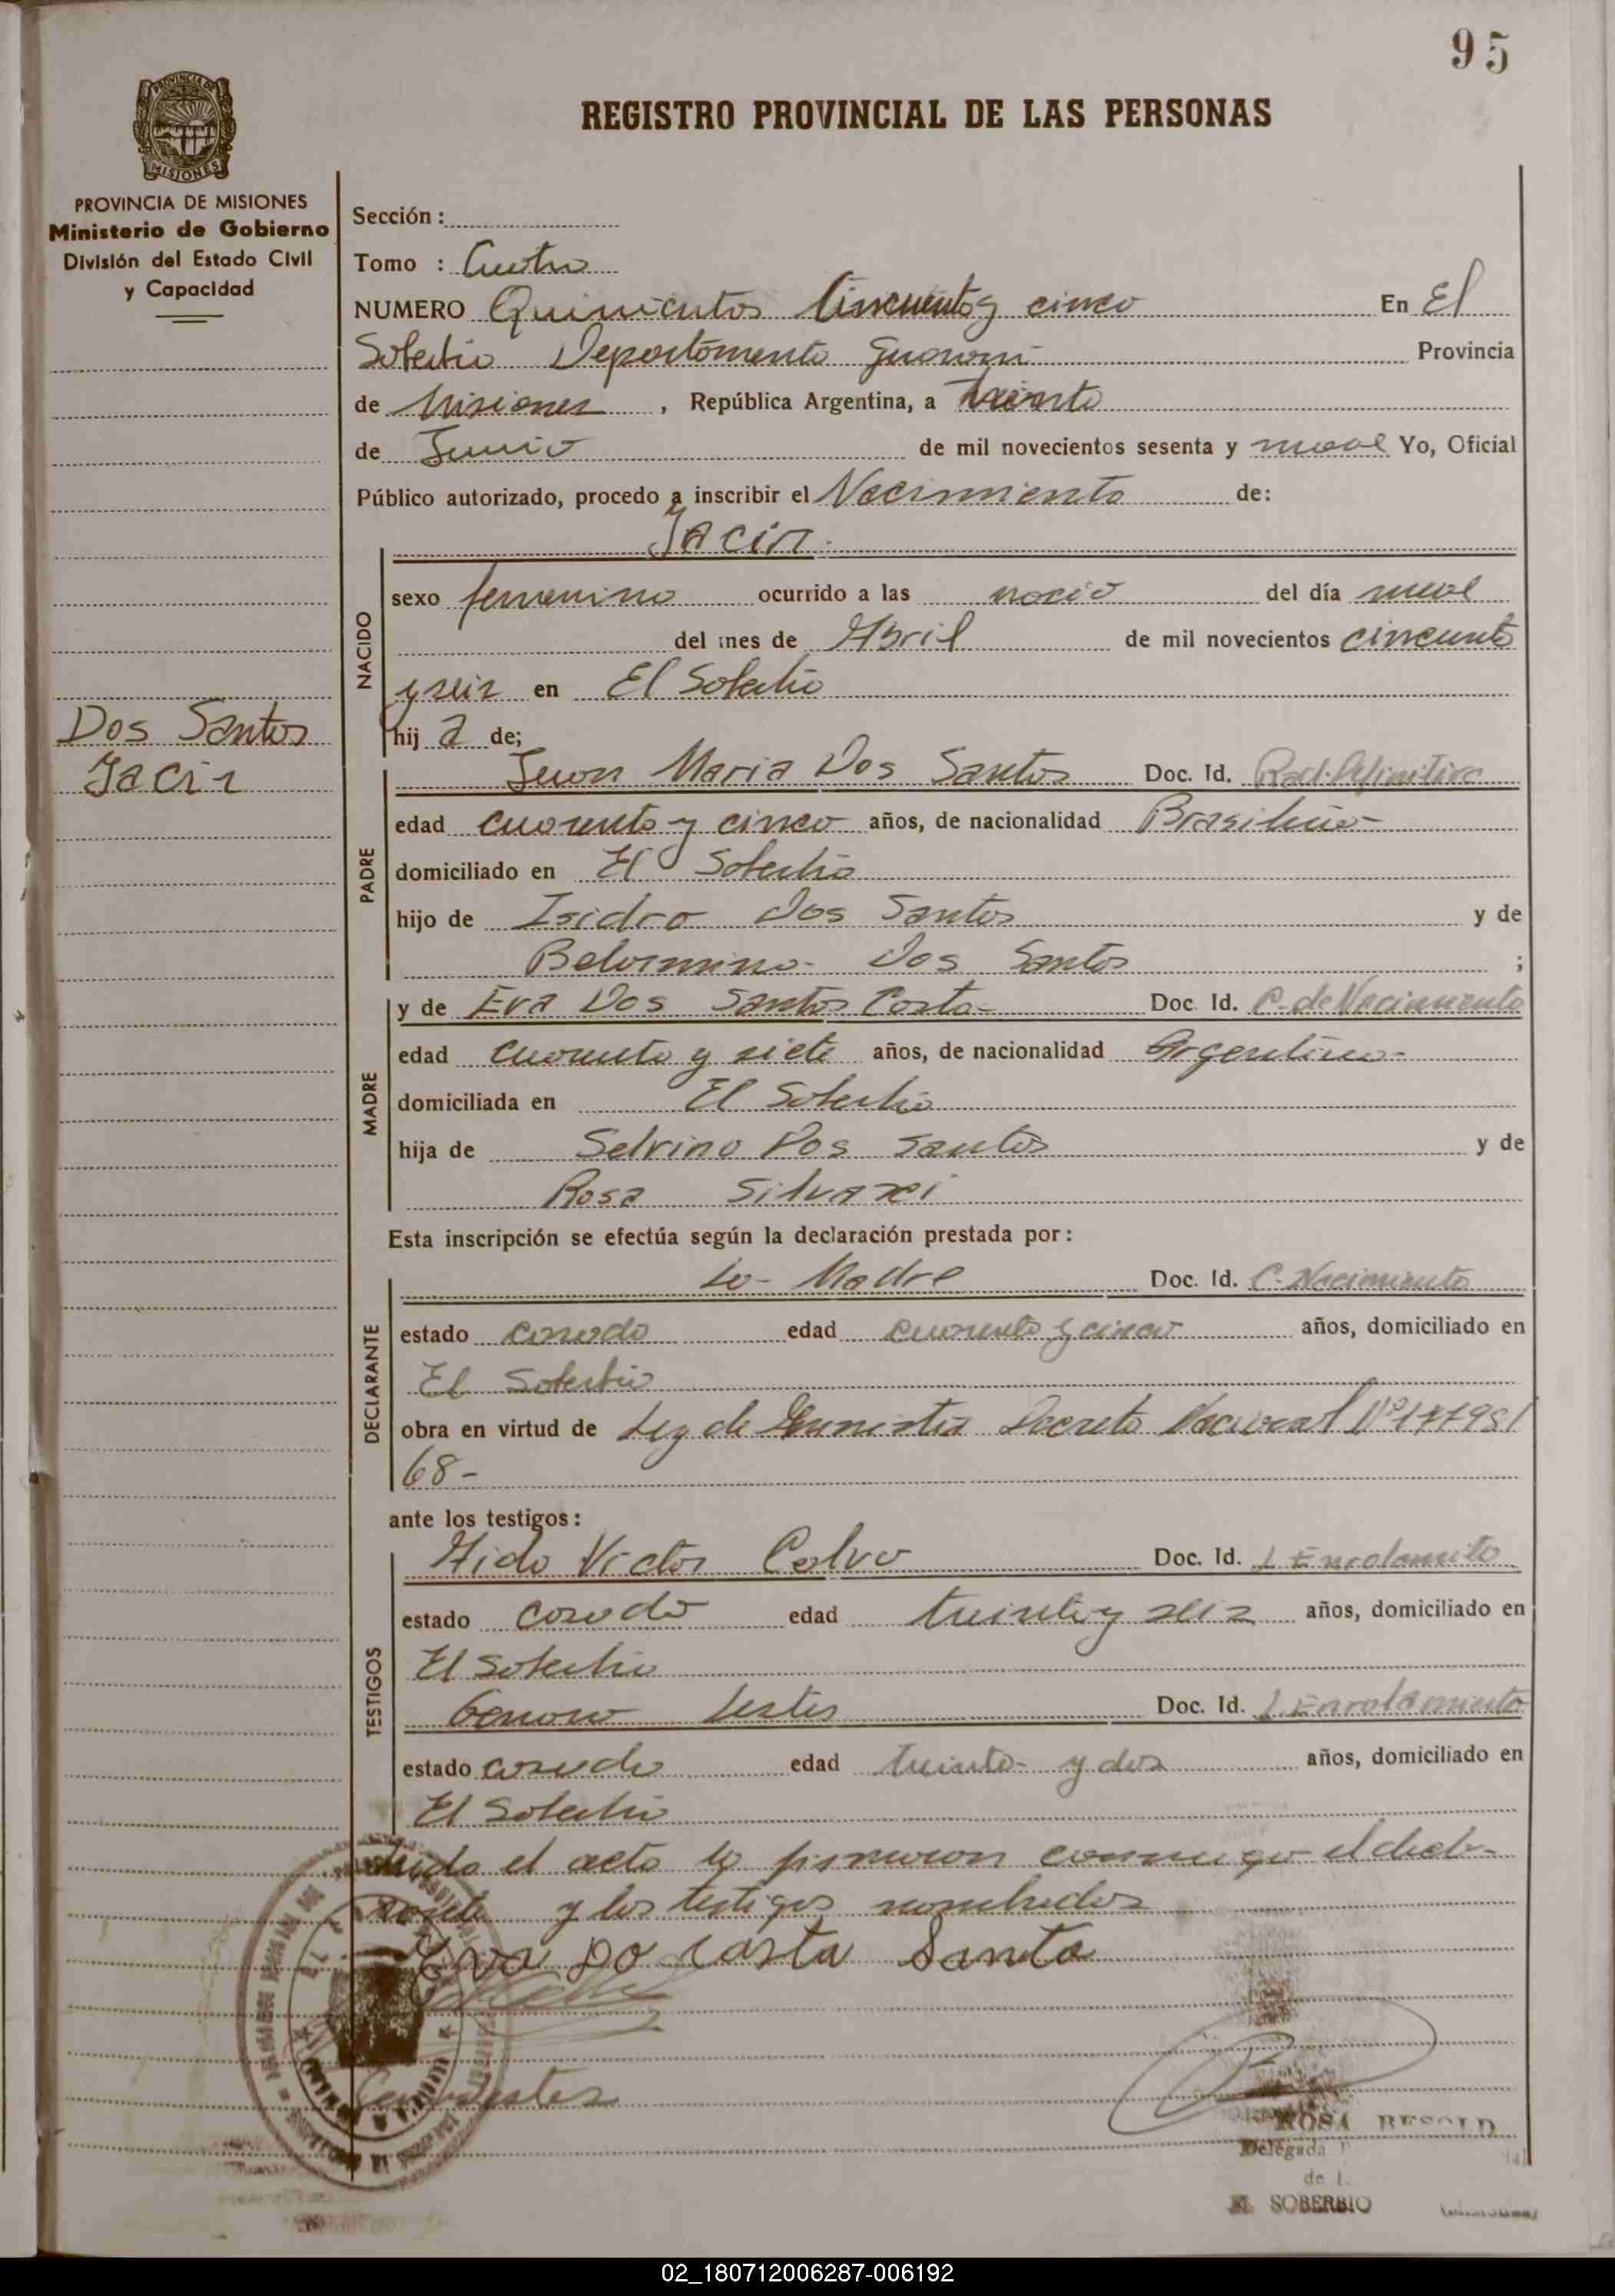 95
REGISTRO PROVINCIAL DE LAS PERSONAS
PROVINCIA DE
MISIONES
PROVINCIA DE MISIONES
Ministerio de Gobierno
División del Estado Civil
y Capacidad
Dos Santos
Jacir
Sección :
Tomo : Cuatro
NUMERO Quinientos Cincuenta y cinco En El
Soberbio Departamento Guarani Provincia
de Misiones , República Argentina, a treinta
de Junio de mil novecientos sesenta y nueve Yo, Oficial
Público autorizado, procedo a inscribir el Nacimiento de:
Jacir
NACIDO
sexo femenino ocurrido a las del día nueve
del mes de Abril de mil novecientos cincuenta
y seis en El Soberbio
hij a de;
PADRE
Juan Maria Dos Santos Doc. Id. Rad. Definitiva
edad cuarenta y cinco años, de nacionalidad Brasileño
domiciliado en El Soberbio
hijo de Isidro Dos Santos y de
Belarmina Dos Santos ;
MADRE
y de Eva Dos Santos Costa Doc. Id. P. de Nacimiento
edad cuarenta y siete años, de nacionalidad Argentina
domiciliada en El Soberbio
hija de Selvino Dos Santos y de
Rosa
Esta inscripción se efectúa según la declaración prestada por :
DECLARANTE
La Madre Doc. Id. P. Nacimiento
estado casado edad cuarenta y cinco años, domiciliado en
El Soberbio
obra en virtud de Ley de Decreto Nacional Nº 17798/
68-
ante los testigos :
TESTIGOS
Aido Victor Calvo Doc. Id. L Enrolamiento
estado casado edad treinta y seis años, domiciliado en
El Soberbio
Genaro Doc. Id. L Enrolamiento
estado casado edad treinta y dos años, domiciliado en
El Soberbio
Leida el acta la firmaron conmigo el decla-
rante y los testigos nombrados
Eva Do Costa Santa
ROSA BESOLD
Delegada
EL SOBERBIO
(Misiones)
02_180712006287-006192